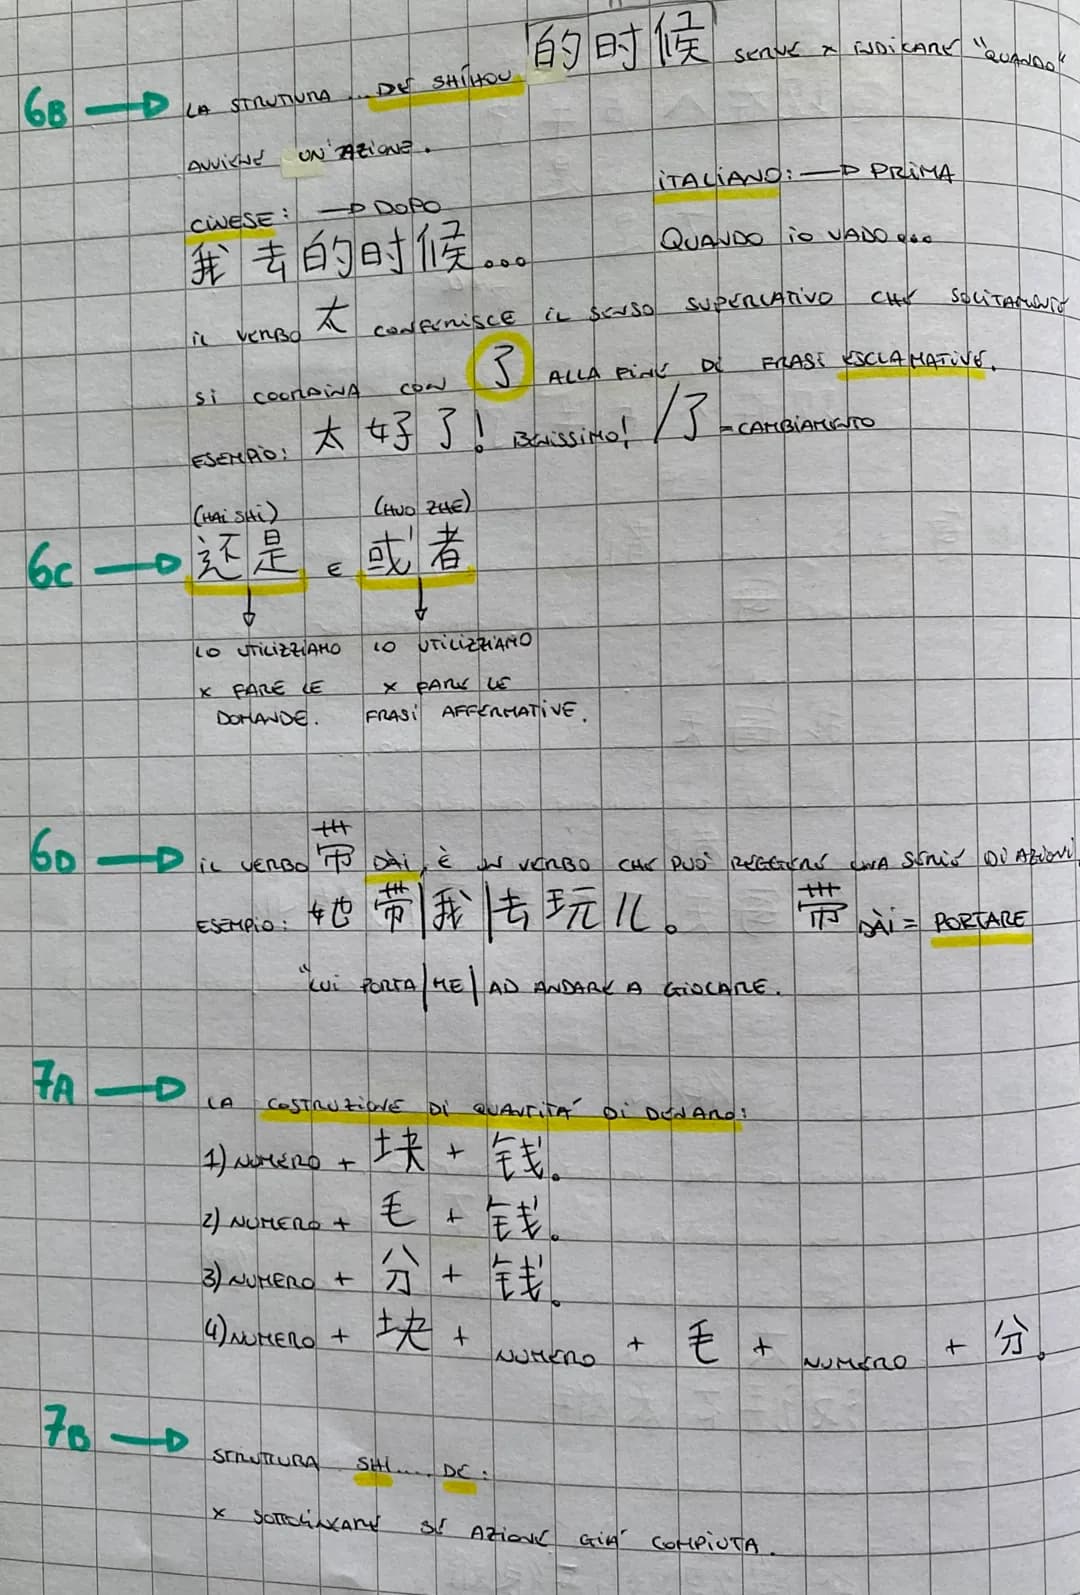 6B → LA STRUTTURA ... DE SHIHOU 的时候 SERVE X INDICARE "QUANDO"
AVVIENE UN'AZIONE.
CINESE: → DOPO ITALIANO: → PRIMA
我去的时候... QUANDO IO VADO...
IL VERBO 太 CONFERISCE IL SENSO SUPERLATIVO CHE SOLITAMENTE
SI COORDINA CON 了 ALLA FINE DI FRASI ESCLAMATIVE.
ESEMPIO: 太好了! BENISSIMO! /了 = CAMBIAMENTO
(HAI SHI) (HUO ZHE)
6C → 还是 E 或者
LO UTILIZZIAMO LO UTILIZZIAMO
X FARE LE X FARE LE
DOMANDE. FRASI AFFERMATIVE.
6D → IL VERBO 带 DÀI, È UN VERBO CHE PUÒ REGGERE UNA SERIE DI AZIONI
ESEMPIO: 他带|我|去玩儿。 带 DÀI = PORTARE
"LUI PORTA|ME| AD ANDARE A GIOCARE.
7A → LA COSTRUZIONE DI QUANTITÀ DI DENARO:
1) NUMERO + 块 + 钱。
2) NUMERO + 毛 + 钱。
3) NUMERO + 分 + 钱。
4) NUMERO + 块 + NUMERO + 毛 + NUMERO + 分。
7B → STRUTTURA SHI.... DE:
X SOTTOLINEARE SE AZIONE GIÀ COMPIUTA.